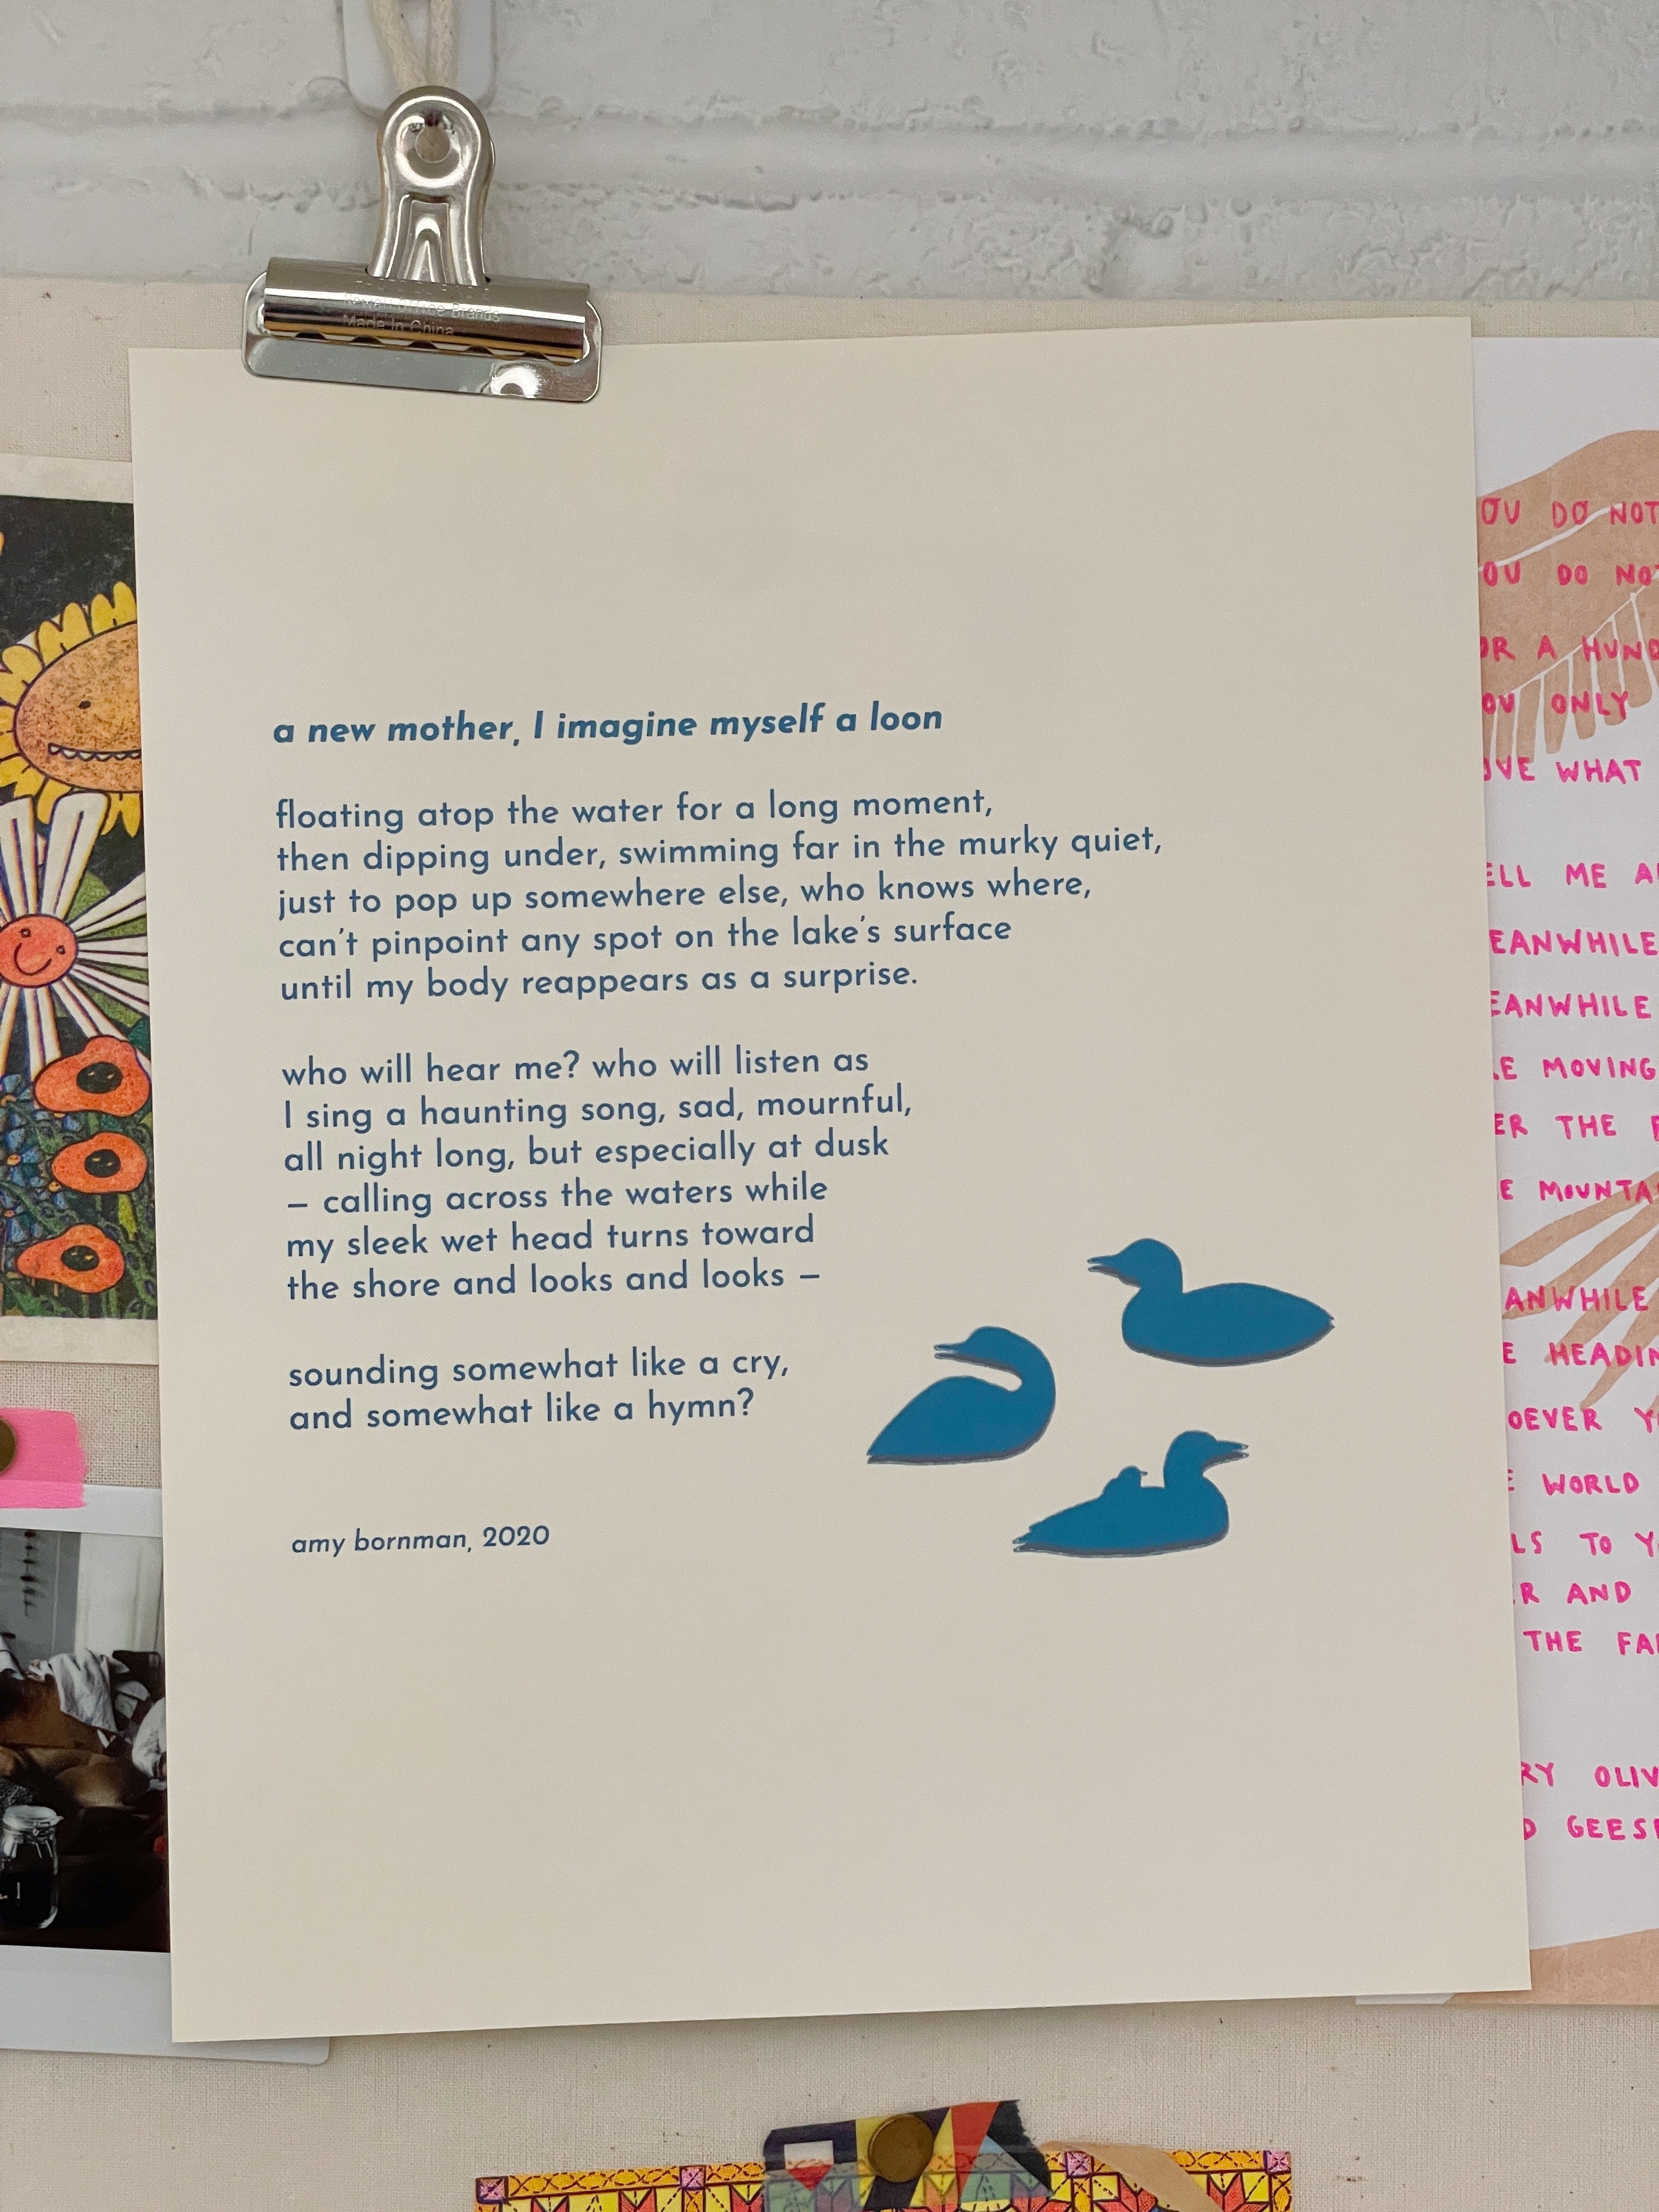 Office Brands
Made In China
a new mother, I imagine myself a loon
floating atop the water for a long moment,
then dipping under, swimming far in the murky quiet,
just to pop up somewhere else, who knows where,
can't pinpoint any spot on the lake's surface
until my body reappears as a surprise.
who will hear me? who will listen as
I sing a haunting song, sad, mournful,
all night long, but especially at dusk
– calling across the waters while
my sleek wet head turns toward
the shore and looks and looks –
sounding somewhat like a cry,
and somewhat like a hymn?
amy bornman, 2020
OU DO NOT
OU DO NOT
OR A HUND
OU ONLY
OVE WHAT
ELL ME A
EANWHILE
EANWHILE
RE MOVING
ER THE P
E MOUNTA
ANWHILE
E HEADIN
OEVER Y
E WORLD
LS TO Y
R AND
THE FA
RY OLIV
D GEESE